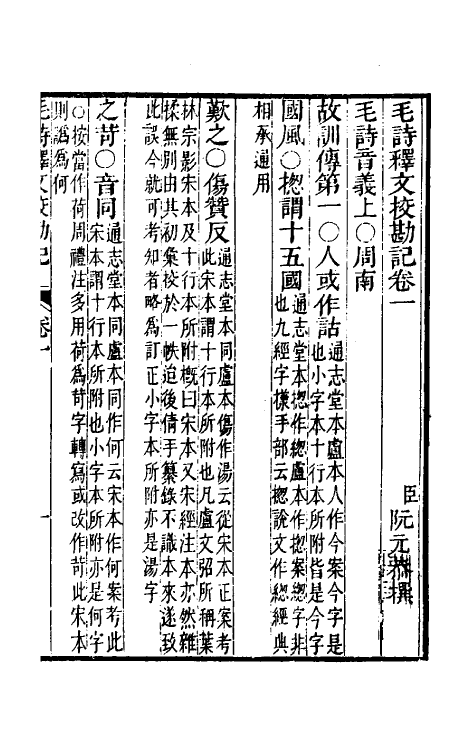 毛詩釋文校勘記卷一
臣阮元恭撰
毛詩音義上○周南
故訓傳第一○人或作詁通志堂本盧本人作今案今字是
也小字本十行本所附皆是今字
國風○揔謂十五國通志堂本揔作總盧本作揔案總字非
也九經字樣手部云揔說文作總經典
相承通用
歎之○傷贊反通志堂本同盧本傷作湯云從宋本正案考
此宋本謂十行本所附也凡盧文弨所稱葉
林宗影宋本及十行本所附概曰宋本又宋經注本亦然雜
揉無別由其初彙校於一帙迨後倩手纂錄不識本來遂致
此誤今就可考知者略為訂正小字本所附亦是湯字
之苛○音同通志堂本同盧本同作何云宋本作何案考此
宋本謂十行本所附也小字本所附亦是何字
○按當作荷周禮注多用荷為苛字轉寫或改作苛此宋本
則譌為何
毛詩釋文校勘記
卷一
一